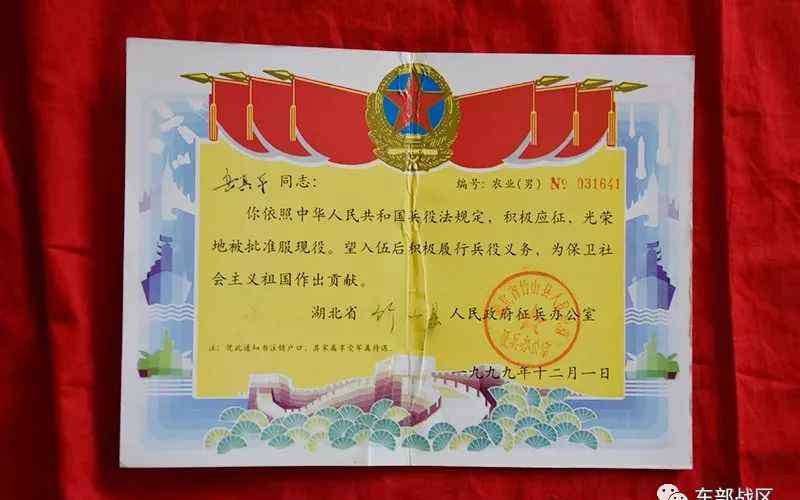 同志：
编号：农业(男) № 031641
你依照中华人民共和国兵役法规定，积极应征，光荣
地被批准服现役。望入伍后积极履行兵役义务，为保卫社
会主义祖国作出贡献。
湖北省 竹山县 人民政府征兵办公室
注：凭此通知书注销户口；其家属享受军属待遇。
一九九九年十二月一日
东部战区